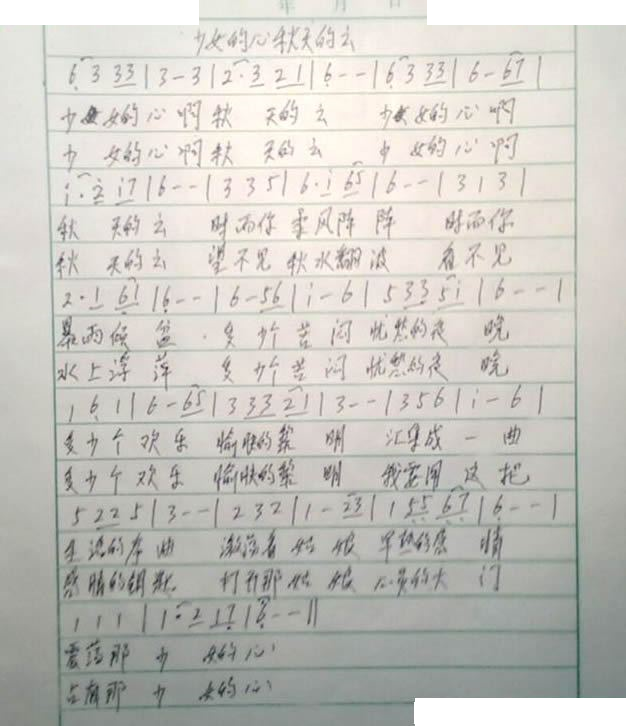 年 月 日
少女的心秋天的云
6 3 33 | 3 - 3 | 2·3 21 | 6 - - | 6 3 33 | 6 - 67 |
少女的心啊 秋 天的云 少女的心啊
少 女的心啊 秋 天的云 少 女的心 啊
i·2 i7 | 6 - - | 3 3 5 | 6·i 65 | 6 - - | 3 1 3 |
秋 天的云 时而你 柔风阵 阵 时而你
秋 天的云 望不见 秋水翻 波 看不见
2·1 61 | 6 - - | 6 - 56 | i - 6 | 5 33 5i | 6 - - |
暴雨倾 盆 多少个 苦 闷 忧愁的夜 晚
水上浮 萍 多少个 苦 闷 忧愁的夜 晚
1 6 1 | 6 - 65 | 3 33 21 | 3 - - | 3 5 6 | i - 6 |
多少个 欢 乐 愉快的黎 明 汇集成 一 曲
多少个 欢 乐 愉快的黎 明 我要用 这 把
5 22 5 | 3 - - | 2 3 2 | 1 - 23 | 1 55 67 | 6 - - |
生活的序 曲 激荡着 姑 娘 早熟的感 情
感情的钥匙 打开那 姑 娘 心灵的大 门
1 1 1 | 1·2 17 | 6 - - ||
震荡那 少 女的心
占有那 少 女的心